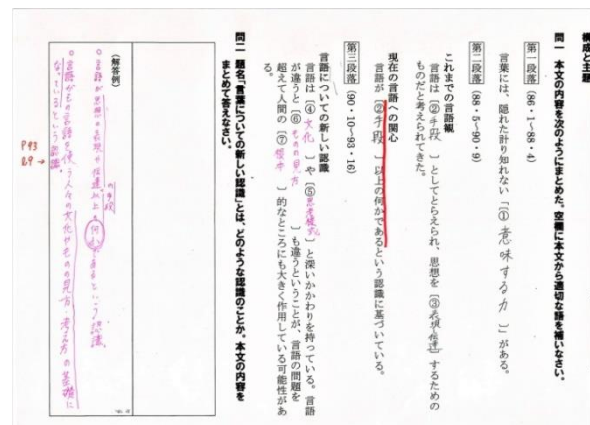 構成と主題
問一　本文の内容を次のようにまとめた。空欄に本文から適切な語を補いなさい。
第一段落（86・1～88・4）
言葉には、隠れた計り知れない「〔① 意味する力 〕」がある。
第二段落（88・5～90・9）
これまでの言語観
言語は〔② 手段 〕としてとらえられ、思想を〔③ 表現・伝達 〕するための
ものだと考えられてきた。
現在の言語への関心
言語が〔② 手段 〕以上の何かであるという認識に基づいている。
第三段落（90・10～93・16）
言語についての新しい認識
言語は〔④ 文化 〕や〔⑤ 思考様式 〕と深いかかわりを持っている。言語
が違うと〔⑥ ものの見方 〕も違うということが、言語の問題を
超えて人間の〔⑦ 根本 〕的なところにも大きく作用している可能性があ
る。
問二　題名「言葉についての新しい認識」とは、どのような認識のことか。本文の内容を
まとめて答えなさい。
（解答例）
○言語が思想の表現や伝達の手段以上の何かであるという認識。
○言語がその言語を使う人々の文化やものの見方・考え方の基礎に
なっているという認識。
P93
l9→